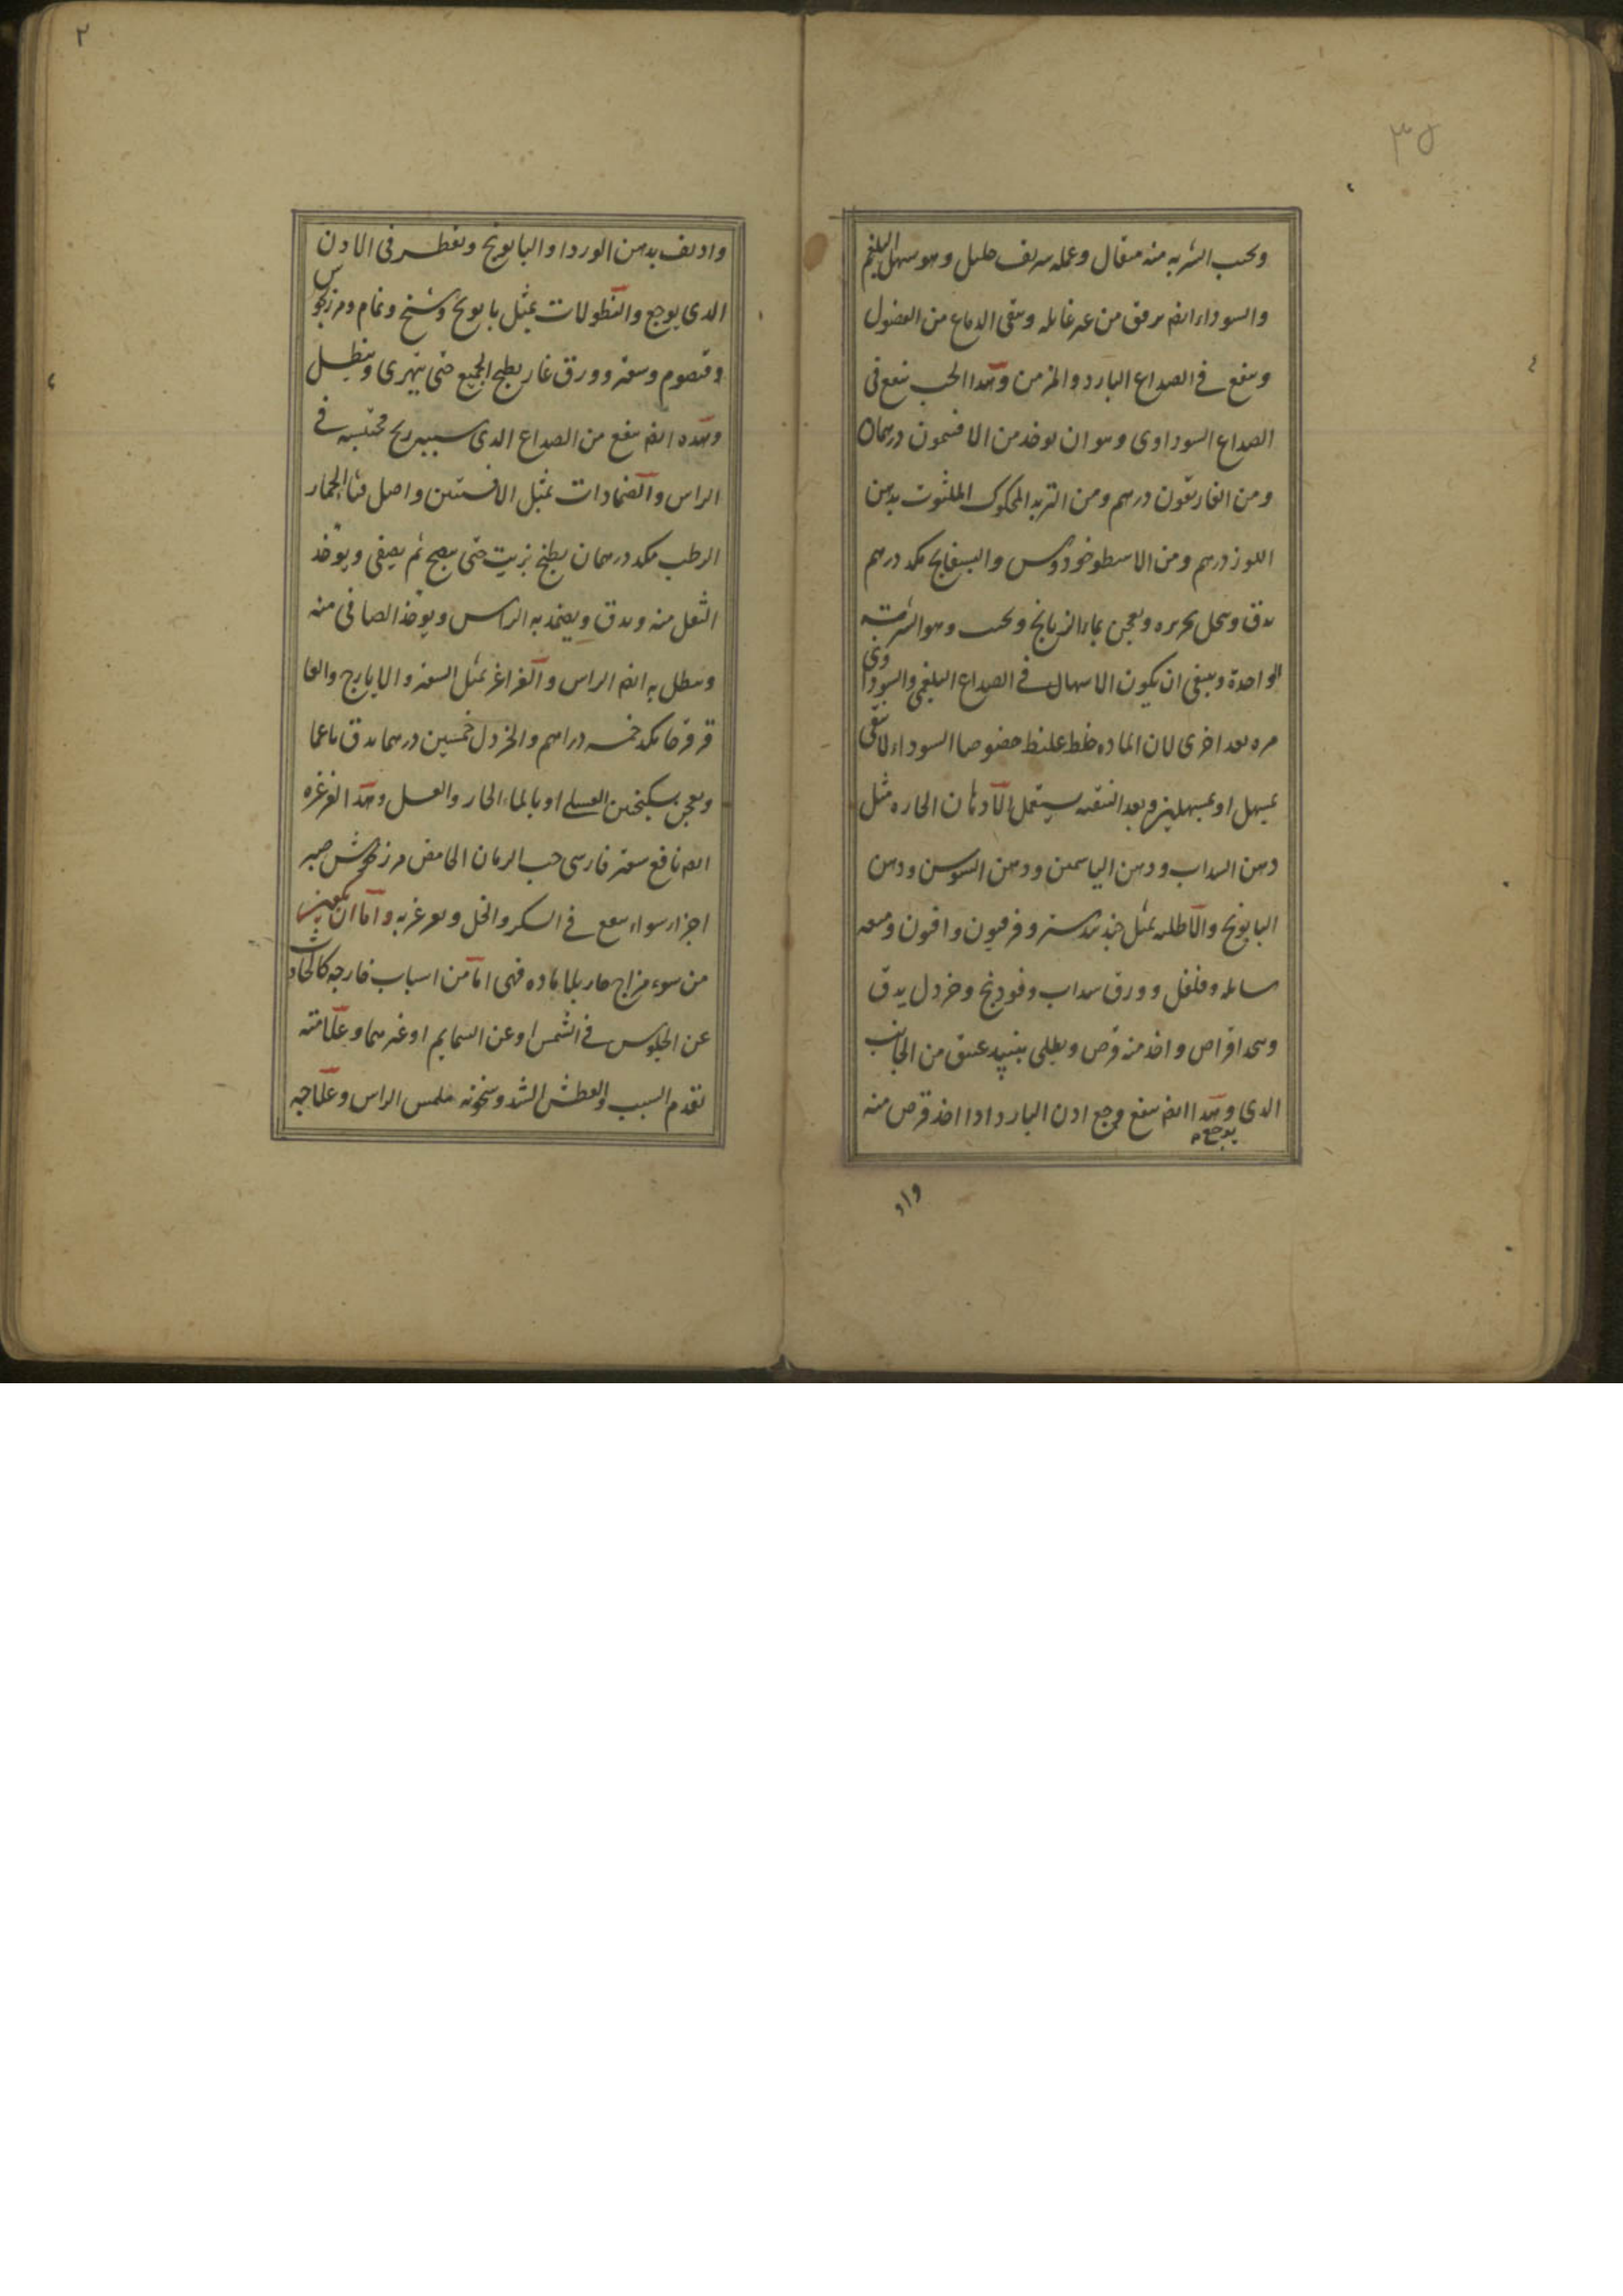 ٣٥
ويحبب الشربه منه مثقال وعمله شريف جليل وهو يسهل البلغم
والسوداء ايضا برفق من غير غايله وينقى الدماغ من الفضول
وينفع في الصداع البارد والمزمن وهذا الحب ينفع في
الصداع السوداوى وهو ان يوخد من الافتيمون درهمان
ومن الغاريقون درهم ومن التربد المحكوك الملتوت بدهن
اللوز درهم ومن الاسطوخودوس والبسفايج مكد درهم
يدق وينخل بحريره ويعجن بماء الرازيانج ويحبب وهو الشربة
الواحدة وينبغى ان يكون الاسهال في الصداع البلغمى والسوداوى
مره بعد اخرى لان الماده خلط غليظ خصوصا السوداء لا ينقى
بمسهل او بمسهلين وبعد التنقيه يستعمل الادهان الحاره مثل
دهن السداب ودهن الياسمين ودهن السوسن ودهن
البابونج والاطليه بمثل جندبيدستر وفرفيون وافيون وميعه
سايله وفلفل وورق سداب وفودنج وخردل يدق
ويتخد اقراص واخد منه قرص ويطلى بنبيد عتيق من الجانب
الدى يوجع وهذا ايضا ينفع وجع ادن البارد ادا اخد قرص منه
واد
٢
واديف بدهن الورد او البابونج ويقطر في الادن
الدى يوجع والنطولات بمثل بابونج وشيح ونمام ومرزنجوش
وقيصوم وسعتر وورق غار يطبخ الجميع حتى يتهرى وينطل
وهذه ايضا ينفع من الصداع الدى سببه ريح محتبسه في
الراس والضمادات بمثل الافسنتين واصل قثاء الحمار
الرطب مكد درهمان يطبخ بزيت حتى ينضج ثم يصفى ويوخد
الثفل منه ويدق ويضمد به الراس ويوخذ الصافى منه
وينطل به ايضا الراس والغراغر بمثل السعتر والايارج والعا
قرقرحا مكد خمسه دراهم والخردل خمسين درهما يدق ناعما
ويعجن بسكنجبين العسلى او بالماء الحار والعسل وهذا الغرغره
ايضا نافع سعتر فارسى حب الرمان الحامض مرزنجوش صبر
اجزاء سواء ينقع في السكر والخل ويغرغر به واما ان يكون
من سوء مزاج حار بلا ماده فهى اما من اسباب خارجه كالحادث
عن الجلوس في الشمس او عن السمايم او غيرهما وعلامته
تقدم السبب والعطش الشديد وسخونه ملمس الراس وعلاجه